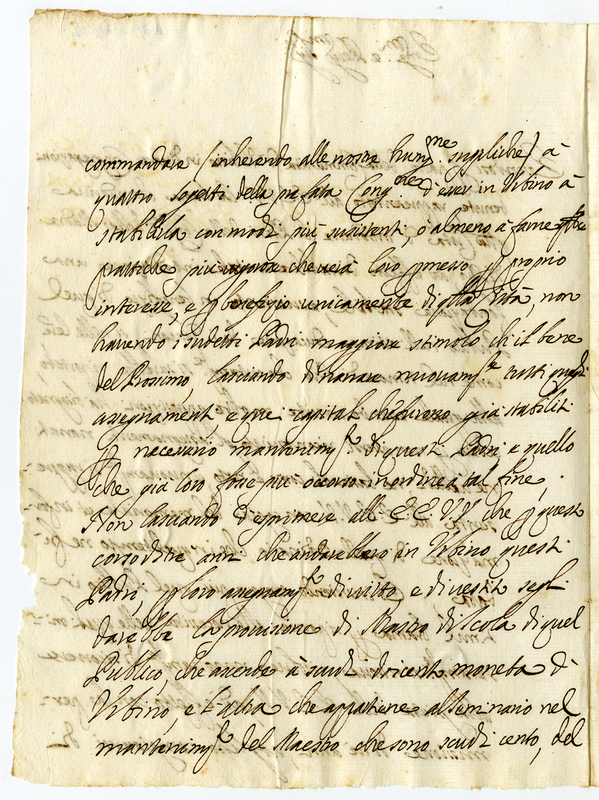 commandare (inherendo alle nostre hum.me suppliche) à
quattro sogetti della prefata Cong.ne d'esser in Urbino à
stabilirla con modi più sussistenti, ò almeno à farne
prattiche più vigorose che verà loro p̄messo p̄ proprio
interesse, e p̄ benefizio unicamente di q̄lla Città, non
havendo i sudetti Padri maggiore stimolo ch'il bene
del Prossimo, lasciando di narrare nuovam.te tutti quegli
assegnamenti, e que' capitali che furono già stabiliti
p̄ necessario mantenim.to di questi Padri e quello
che già loro fosse più occorso in ordine à tal fine.
Non lasciando d'esprimere all' E E. V V. che p̄ questo
corso di tre anni che andarebbero in Urbino questi
Padri, p̄ loro assegnam.to di vitto, e di vestito segli
darebbe la provisione di Mastro di scola di quel
Publico, che ascende à scudi doicento moneta di
Urbino, e l'altra che appartiene al Seminario nel
mantenim.to del Maestro che sono scudi cento, del